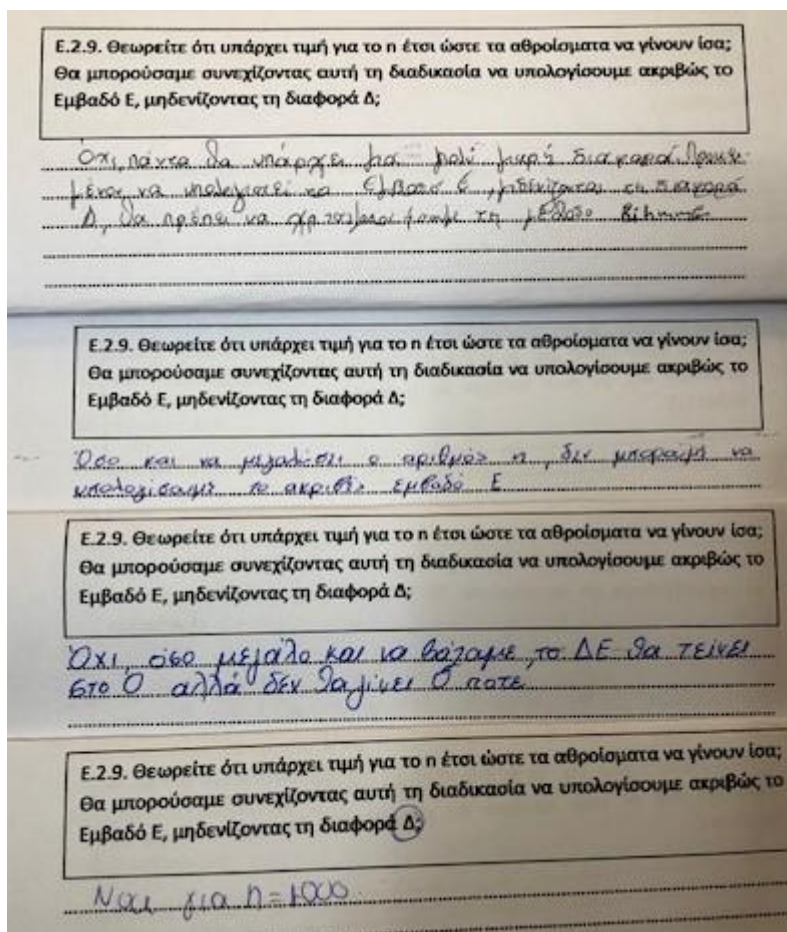 Ε.2.9. Θεωρείτε ότι υπάρχει τιμή για το n έτσι ώστε τα αθροίσματα να γίνουν ίσα;
Θα μπορούσαμε συνεχίζοντας αυτή τη διαδικασία να υπολογίσουμε ακριβώς το
Εμβαδό Ε, μηδενίζοντας τη διαφορά Δ;
Όχι, πάντα θα υπάρχει μια πολύ μικρή διαφορά. Προκει
μένου να υπολογιστεί το Εμβαδό Ε, μηδενίζοντας τη διαφορά
Δ, θα πρέπει να χρησιμοποιήσουμε τη μέθοδο
Ε.2.9. Θεωρείτε ότι υπάρχει τιμή για το n έτσι ώστε τα αθροίσματα να γίνουν ίσα;
Θα μπορούσαμε συνεχίζοντας αυτή τη διαδικασία να υπολογίσουμε ακριβώς το
Εμβαδό Ε, μηδενίζοντας τη διαφορά Δ;
Όσο και να μεγαλώσει ο αριθμός n, δεν μπορούμε να
υπολογίσουμε το ακριβές εμβαδό Ε
Ε.2.9. Θεωρείτε ότι υπάρχει τιμή για το n έτσι ώστε τα αθροίσματα να γίνουν ίσα;
Θα μπορούσαμε συνεχίζοντας αυτή τη διαδικασία να υπολογίσουμε ακριβώς το
Εμβαδό Ε, μηδενίζοντας τη διαφορά Δ;
Όχι, όσο μεγάλο και να βάζαμε το ΔΕ θα τείνει
στο 0 αλλά δεν θα γίνει 0 ποτέ
Ε.2.9. Θεωρείτε ότι υπάρχει τιμή για το n έτσι ώστε τα αθροίσματα να γίνουν ίσα;
Θα μπορούσαμε συνεχίζοντας αυτή τη διαδικασία να υπολογίσουμε ακριβώς το
Εμβαδό Ε, μηδενίζοντας τη διαφορά Δ;
Ναι για n=1000